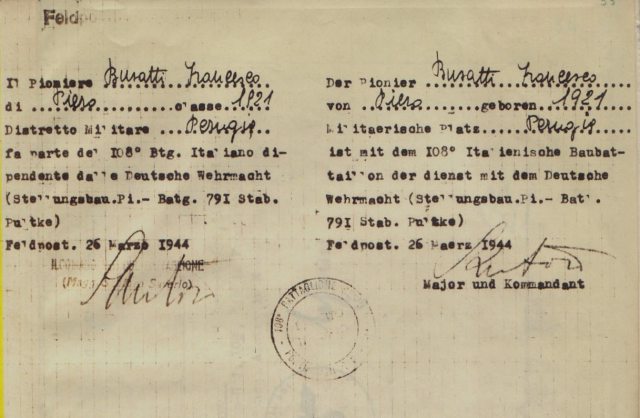 Feldpost
Il Pioniere Buratti Francesco
di Piero classe 1921
Distretto Militare Perugia
fa parte del 108° Btg. Italiano di-
pendente dalle Deutsche Wehrmacht
(Stellungsbau.Pi.- Batg. 791 Stab.
Pultke)
Feldpost. 26 Marzo 1944
IL COMANDANTE
Der Pionier Buratti Francesco
von Piero geboren 1921
Militaerische Platz Perugia
ist mit dem 108° Italienische Baubat-
taillon der dienst mit dem Deutsche
Wehrmacht (Stellungsbau.Pi.- Batl.
791 Stab. Pultke)
Feldpost. 26 Maerz 1944
Major und Kommandant
108° BATTAGLIONE